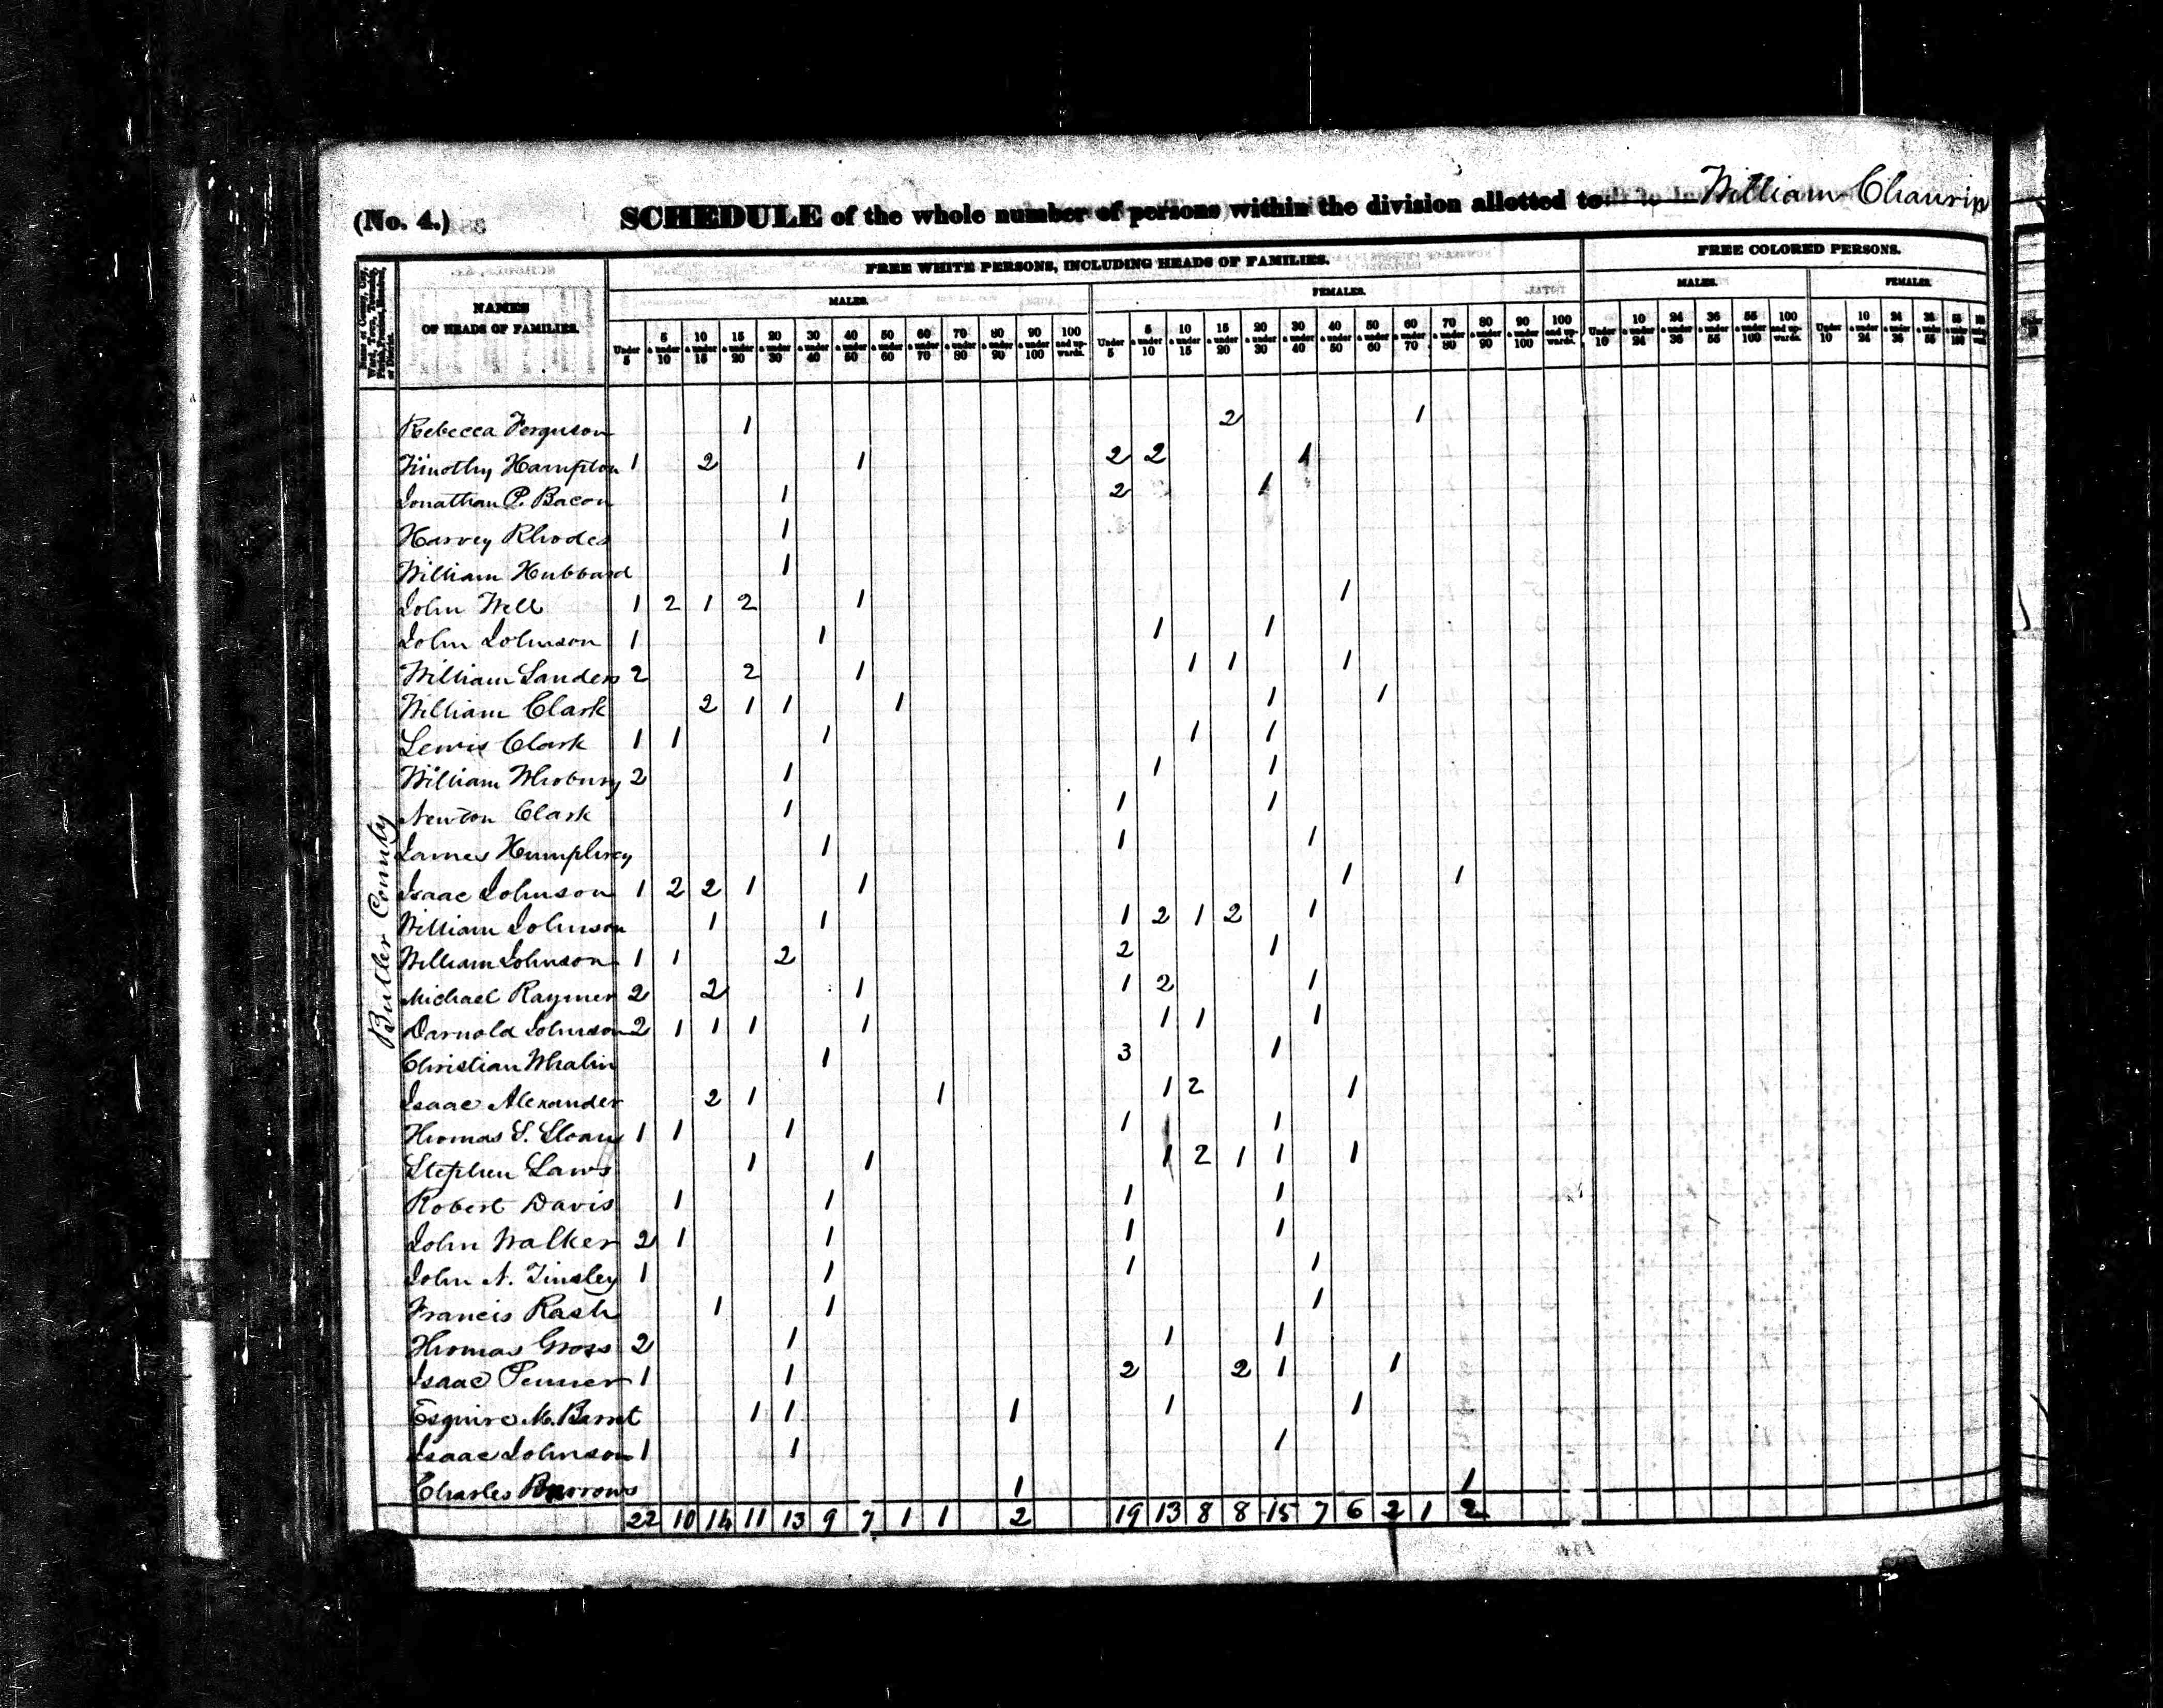 (No. 4.) SCHEDULE of the whole number of persons within the division allotted to William Chaurin
FREE WHITE PERSONS, INCLUDING HEADS OF FAMILIES. FREE COLORED PERSONS.
NAMES OF HEADS OF FAMILIES. MALES. FEMALES. MALES. FEMALES.
Under 5 5 & under 10 10 & under 15 15 & under 20 20 & under 30 30 & under 40 40 & under 50 50 & under 60 60 & under 70 70 & under 80 80 & under 90 90 & under 100 100 and upwards. Under 5 5 & under 10 10 & under 15 15 & under 20 20 & under 30 30 & under 40 40 & under 50 50 & under 60 60 & under 70 70 & under 80 80 & under 90 90 & under 100 100 and upwards. Under 10 10 & under 24 24 & under 36 36 & under 55 55 & under 100 100 and upwards. Under 10 10 & under 24 24 & under 36 36 & under 55 55 & under 100
Butler County
Rebecca Ferguson 1 2 1
Timothy Hampton 1 2 1 2 2 1
Jonathan P. Bacon 1 2 1
Harvey Rhodes 1
William Hubbard 1
John Well 1 2 1 2 1 1
John Johnson 1 1 1 1
William Sanders 2 2 1 1 1 1
William Clark 2 1 1 1 1 1
Lewis Clark 1 1 1 1 1
William 2 1 1 1
Newton Clark 1 1 1
James Humphrey 1 1 1
Isaac Johnson 1 2 2 1 1 1 1
William Johnson 1 1 1 2 1 2 1
William Johnson 1 1 2 2 1
Michael Raymer 2 2 1 1 2 1
Darnold Johnson 2 1 1 1 1 1 1 1
Christian Whalin 1 3 1
Isaac Alexander 2 1 1 1 2 1
Thomas S. Sloan 1 1 1 1 1
Stephen Laws 1 1 1 2 1 1 1
Robert Davis 1 1 1 1
John Walker 2 1 1 1 1
John N. Tinsley 1 1 1 1
Francis Rash 1 1 1
Thomas Gross 2 1 1 1
Isaac Penner 1 1 2 2 1 1
Esquire M. Barret 1 1 1 1 1
Isaac Johnson 1 1 1
Charles Burrows 1 1
22 10 14 11 13 9 7 1 1 2 19 13 8 8 15 7 6 2 1 2